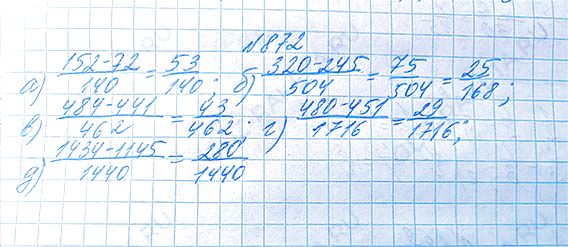 №872
а) (152-72)/140 = 53/140; б) (320-245)/504 = 75/504 = 25/168;
в) (484-441)/462 = 43/462; г) (480-451)/1716 = 29/1716;
д) (1434-1145)/1440 = 280/1440